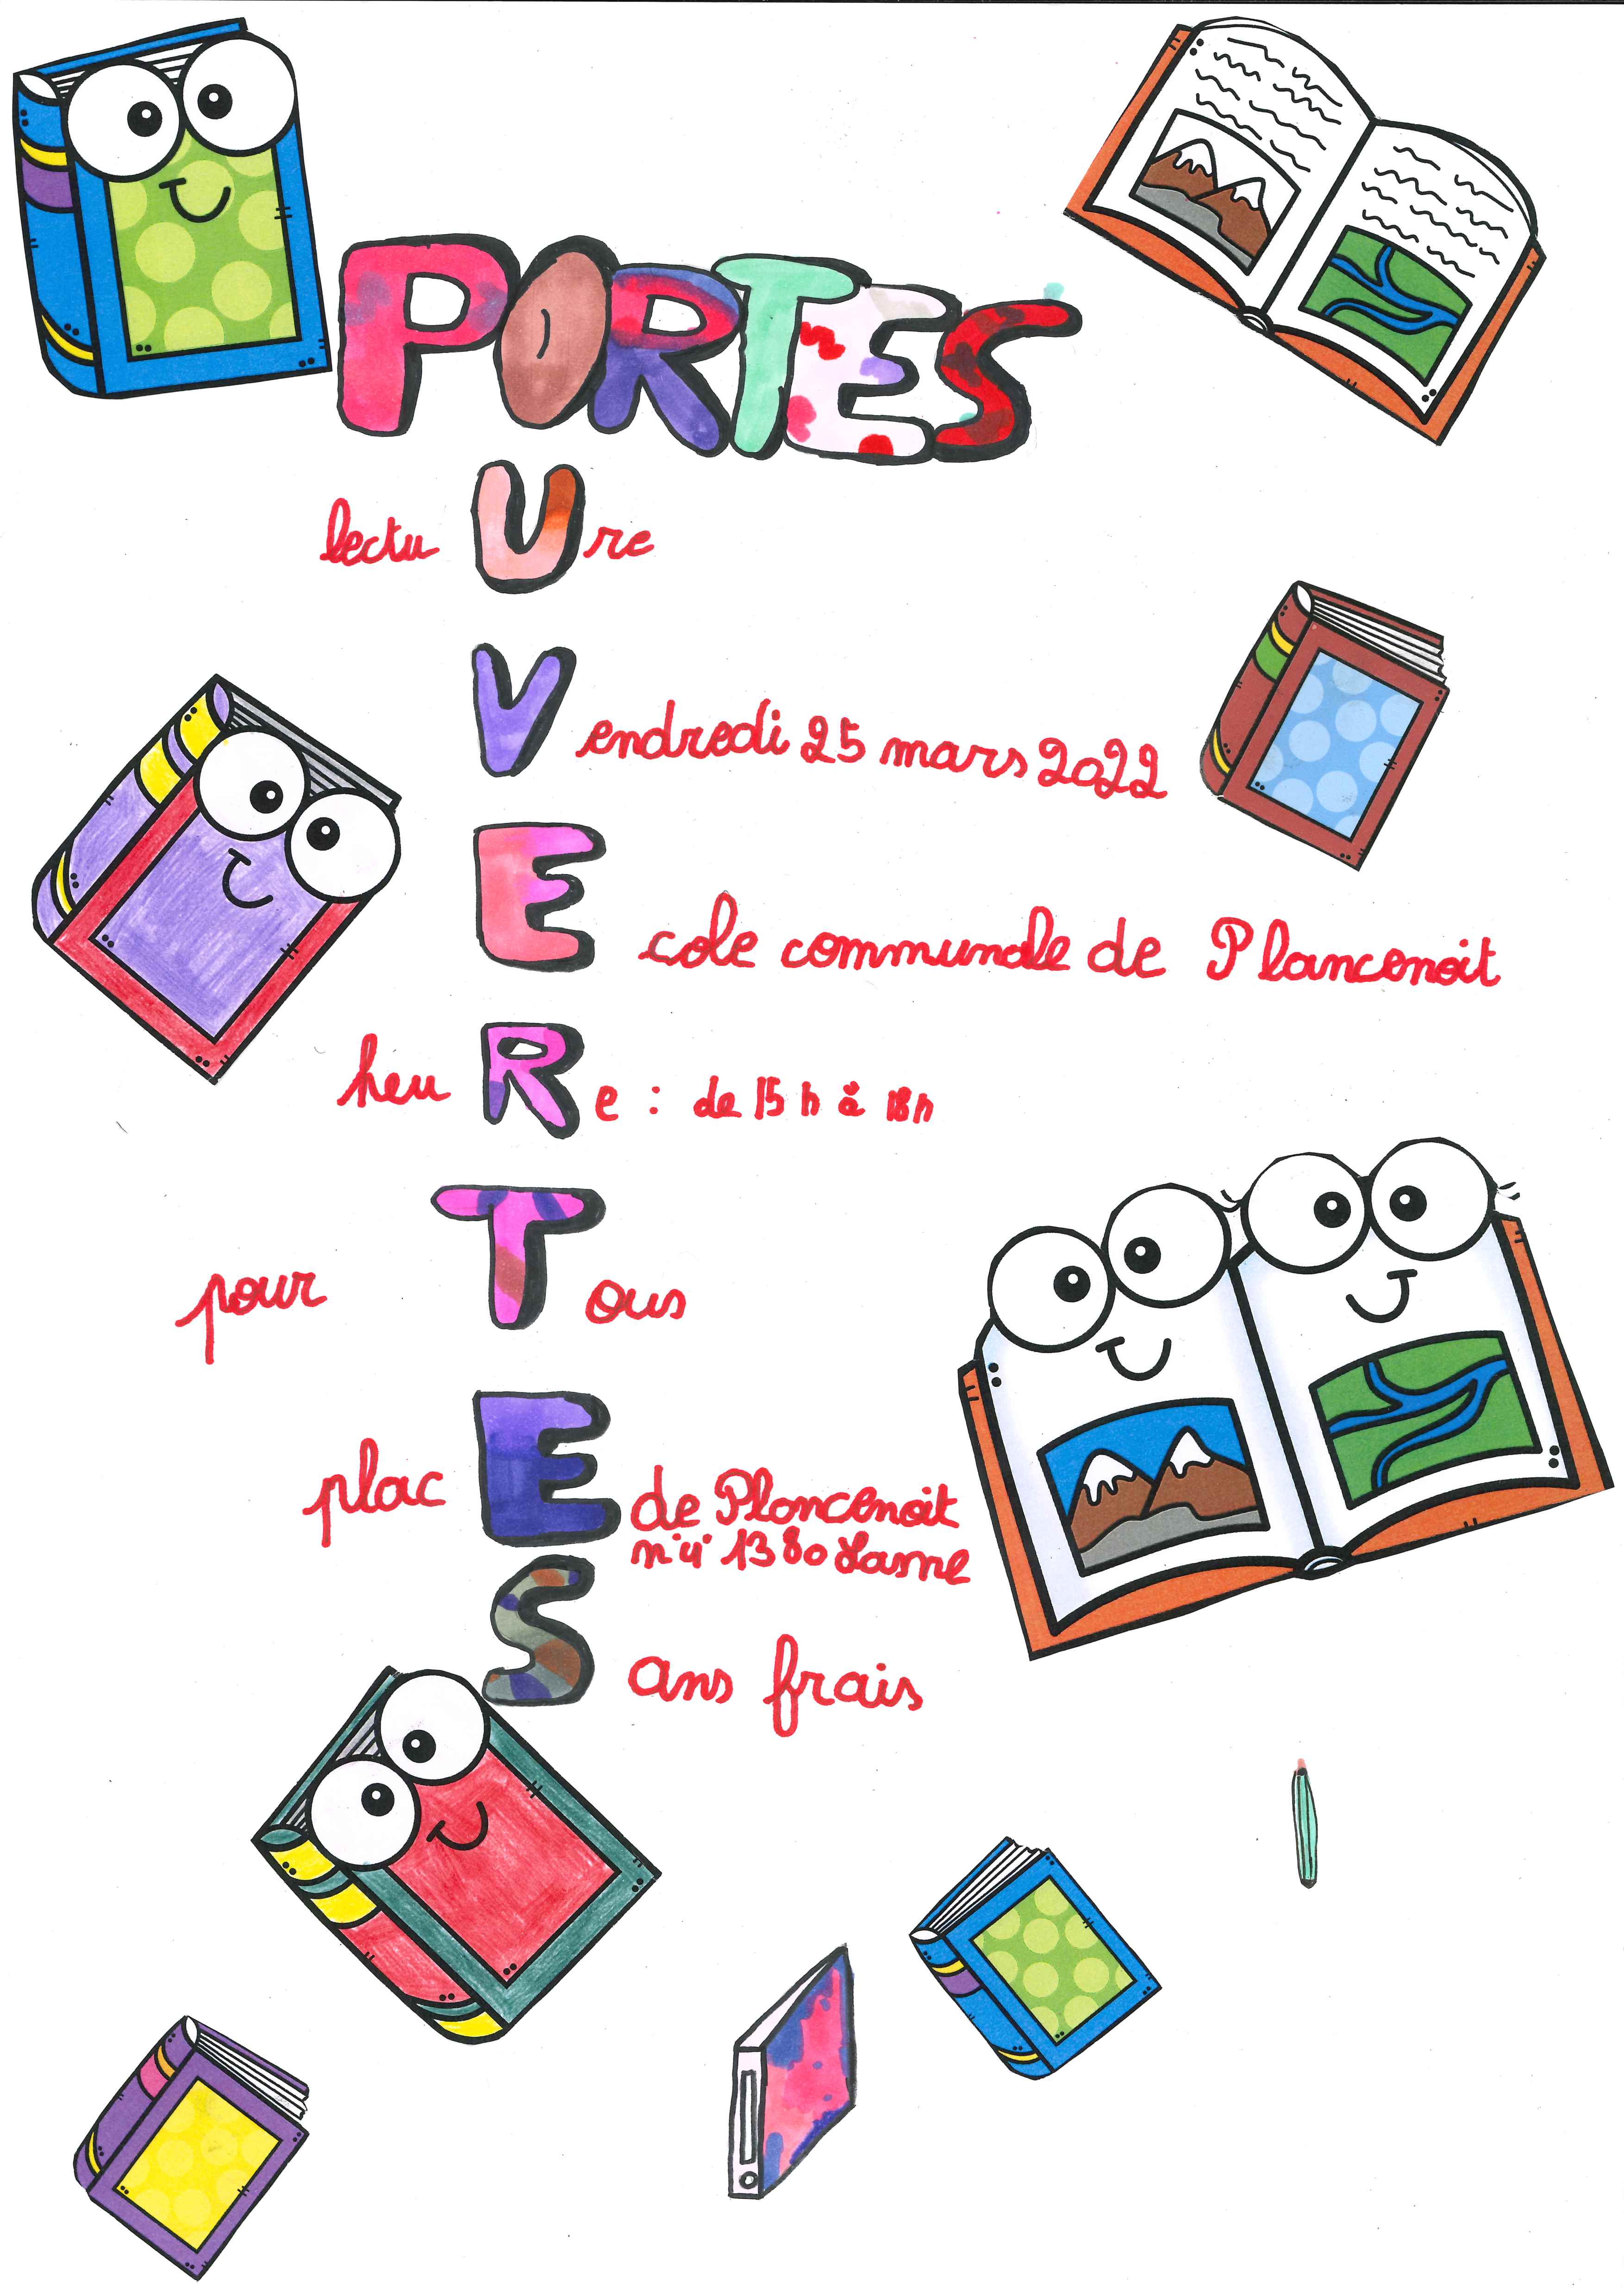 PORTES
lectUre
Vendredi 25 mars 2022
Ecole communale de Plancenoit
heuRe : de 15 h à 18h
pour Tous
placE de Plancenoit
n°4 1380 Lasne
Sans frais